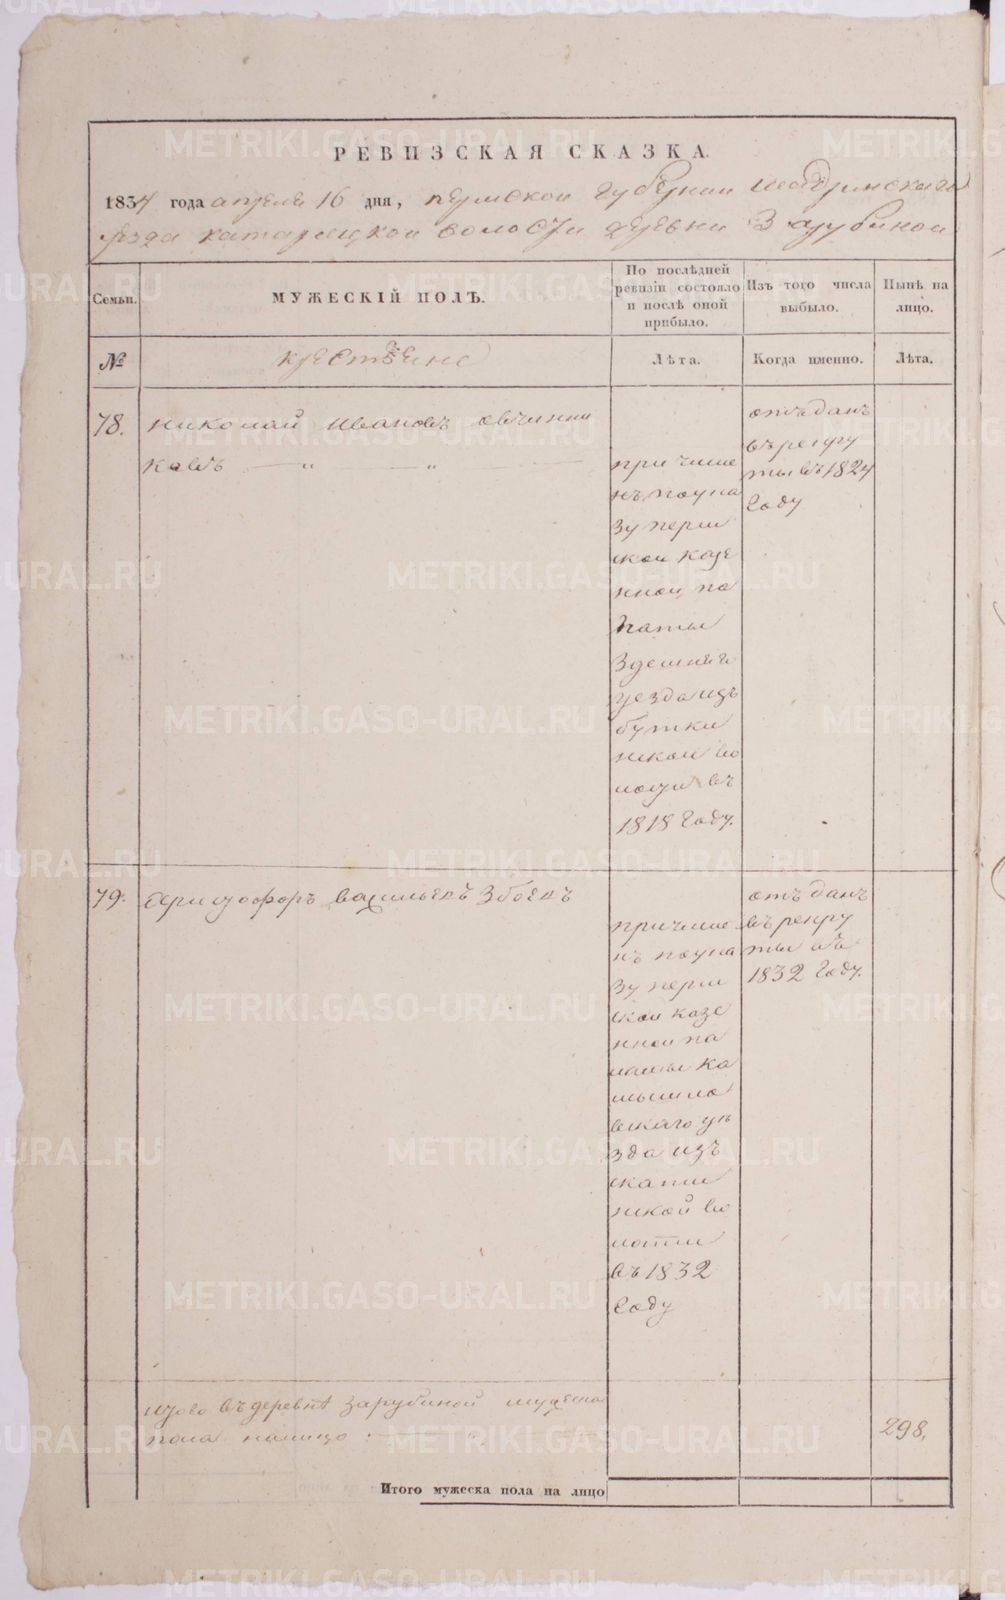 РЕВИЗСКАЯ СКАЗКА.
1834 года апреля 16 дня, пермской губернии шадринскаго
уезда катарацкой волости деревни Зарубиной
Семьи.
МУЖЕСКІЙ ПОЛЪ.
По послѣдней ревизіи состояло и послѣ оной прибыло.
Изъ того числа выбыло.
Нынѣ на лицо.
№
крестьяне
Лѣта.
Когда именно.
Лѣта.
78.
николай Ивановъ овчинни
ковъ
причисле
нъ поука
зу перм
ской казе
нной па
латы
Здешняго
уезда изъ
бутки
нской во
лости въ
1818 Году.
отъданъ
въ рекру
ты въ 1824
Году
79.
Христофоръ васильевъ Збоевъ
причисле
нъ поука
зу перм
ской казе
нной па
латы ка
мышло
вскаго уѣ
зда изъ
скати
нской во
лости
въ 1832
Году
отъданъ
въ рекру
ты въ
1832 Году.
итого въ деревнѣ зарубиной мужеска
пола налицо
298.
Итого мужеска пола на лицо
METRIKI.GASO-URAL.RU